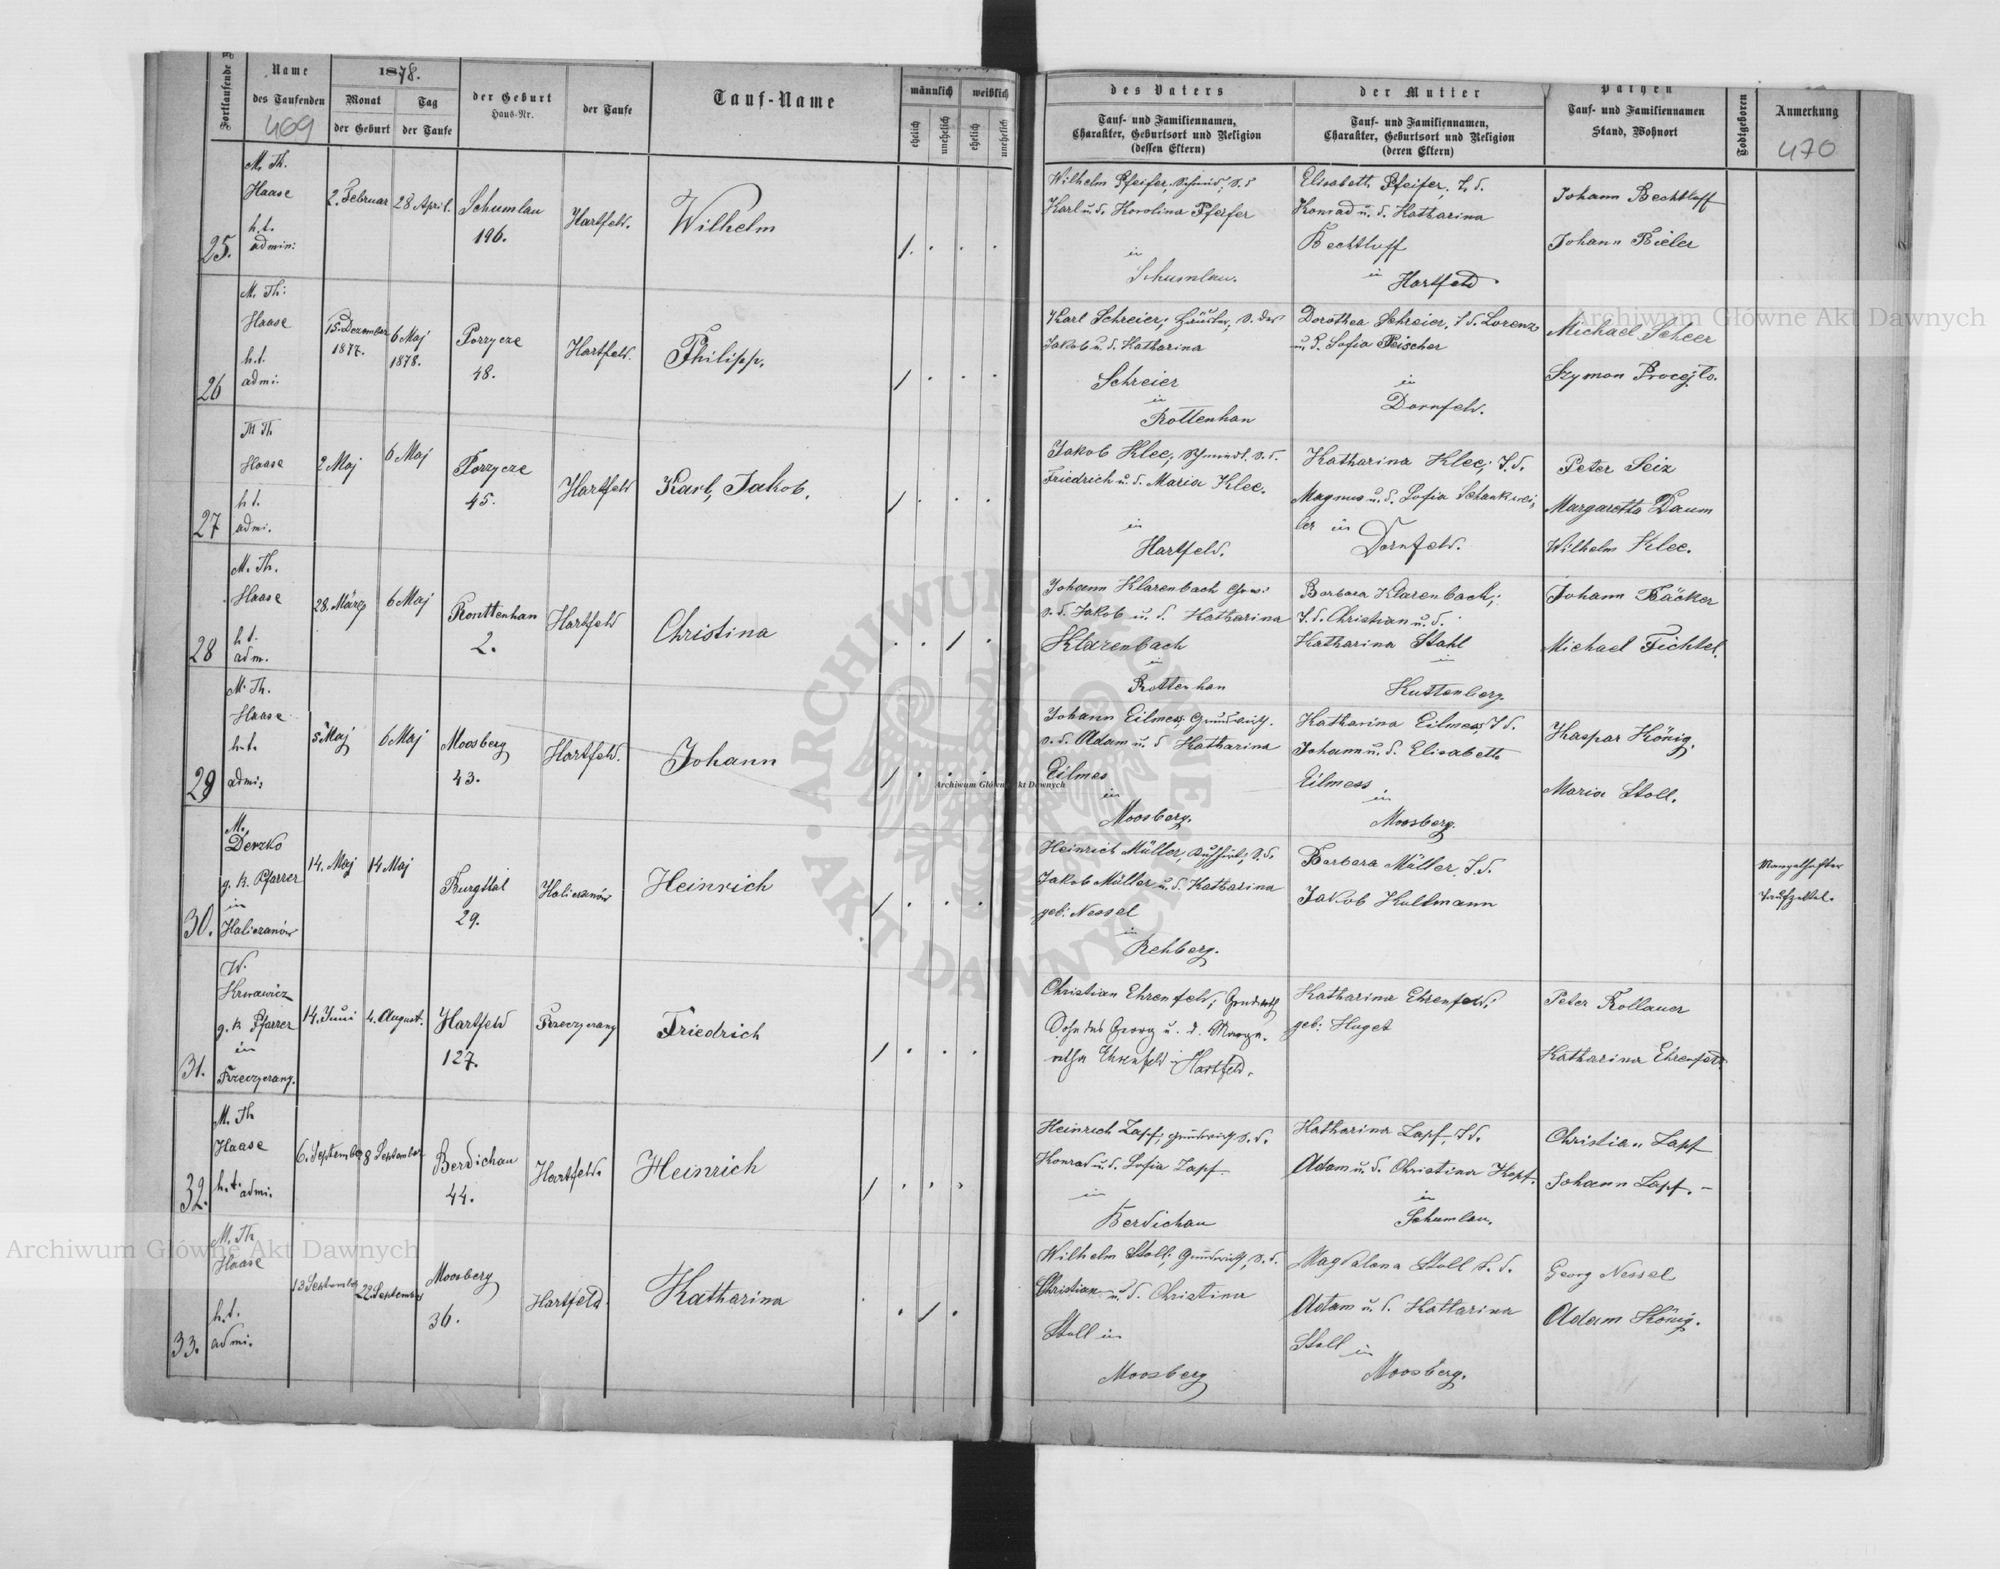 Fortlaufende
Name
des Taufenden
409
1878.
Monat
Tag
der Geburt
der Taufe
der Geburt
Haus-Nr.
der Taufe
Tauf-Name
männlich
weiblich
ehelich
unehelich
ehelich
unehelich
des Vaters
Tauf- und Familiennamen,
Charakter, Geburtsort und Religion
(dessen Eltern)
der Mutter
Tauf- und Familiennamen,
Charakter, Geburtsort und Religion
(deren Eltern)
Pathen
Tauf- und Familiennamen
Stand, Wohnort
Todtgeboren
Anmerkung
470
25.
M. Th.
Haase
h.t.
admin:
2. Februar
28 April.
Schumlau
196.
Hartfeld.
Wilhelm
1.
Wilhelm Pfeifer, Schmid, S. d
Karl u. d. Karolina Pfeifer
in
Schumlau.
Elisabeth Pfeifer, T. d.
Konrad u. d. Katharina
Bechtloff
in
Hartfeld.
Johann Bechtloff
Johann Bieler
26
M. Th:
Haase
h.t.
admi.
15. Dezember
1877.
6 Maj
1878.
Porzycze
48.
Hartfeld.
Philipp.
1
Karl Schreier, Häusler, S. des
Jakob u. d. Katharina
Schreier
in
Rottenhan
Dorothea Schreier, T. d. Lorenz
u. d. Sofia Reischer
in
Dornfeld.
Michael Scheer
Szymon
27
M Th.
Haase
h t.
admi.
2 Maj
6 Maj
Porzycze
45.
Hartfeld
Karl, Jakob.
1
Jakob Klee, Schmidt. S. d.
Friedrich u. d. Maria Klee.
in
Hartfeld.
Katharina Klee, T. d.
Magnus u. d. Sofia Schankwei-
ler in
Dornfeld.
Peter Seiz
Margaretha Daum
Wilhelm Klee.
28
M. Th.
Haase
h t.
adm.
28. März
6 Maj
Ronttenhan
2.
Hartfeld
Christina
1
Johann Klarenbach
S. d. Jakob u. d. Katharina
Klarenbach
in
Rottenhan
Barbara Klarenbach,
T. d. Christian u. d.
Katharina Stahl
in
Kuttenberg.
Johann Bäcker
Michael Fichtel.
29
M. Th.
Haase
h.t.
admi:
5 Maj
6 Maj
Moosberg
43.
Hartfeld.
Johann
1
Johann Eilmes, Grundwirth.
S. d. Adam u. d Katharina
Eilmes
in
Moosberg.
Katharina Eilmess, T. d.
Johann u. d. Elisabeth
Eilmess
in
Moosberg.
Kaspar König.
Maria Stoll.
30.
M.
Derzko
g. k. Pfarrer
in
Haliczanów
14. Maj
14 Maj
Burgthal
29.
Haliczanów
Heinrich
1
Heinrich Müller, S. d.
Jakob Müller u. d. Katharina
geb: Nessel
in
Rehberg.
Barbara Müller, T. d.
Jakob Kullmann
Mangelhafter
Taufzettel.
31.
W.
Krwawicz
g. k Pfarrer
in
14. Juni
4. August.
Hartfeld
127.
Friedrich
1
Christian Ehrenfeld, Grundwirth
Sohn des Georg u. d. Marga-
retha Ehrenfeld in Hartfeld.
Katharina Ehrenfeld,
geb: Huget
Peter Rollauer
Katharina Ehrenfeld.
32.
M. Th
Haase
h. t. admi.
6. September
8 September
Berdichau
44.
Hartfeld.
Heinrich
1
Heinrich Zapf, Grundwirth S. d.
Konrad u. d. Sofia Zapf
in
Berdichau
Katharina Zapf, T. d.
Adam u. d. Christina Kopf.
in
Schumlau.
Christian Zapf
Johann Zapf. –
33.
M. Th
Haase
h.t.
admi.
13 September
22 September
Moosberg
36.
Hartfeld.
Katharina
1
Wilhelm Stoll, Grundwirth, S. d.
Christian u. d. Christina
Stoll in
Moosberg
Magdalena Stoll T. d.
Adam u. d. Katharina
Stoll in
Moosberg.
Georg Nessel
Adam König.
Archiwum Główne Akt Dawnych
Archiwum Główne Akt Dawnych
Archiwum Główne Akt Dawnych